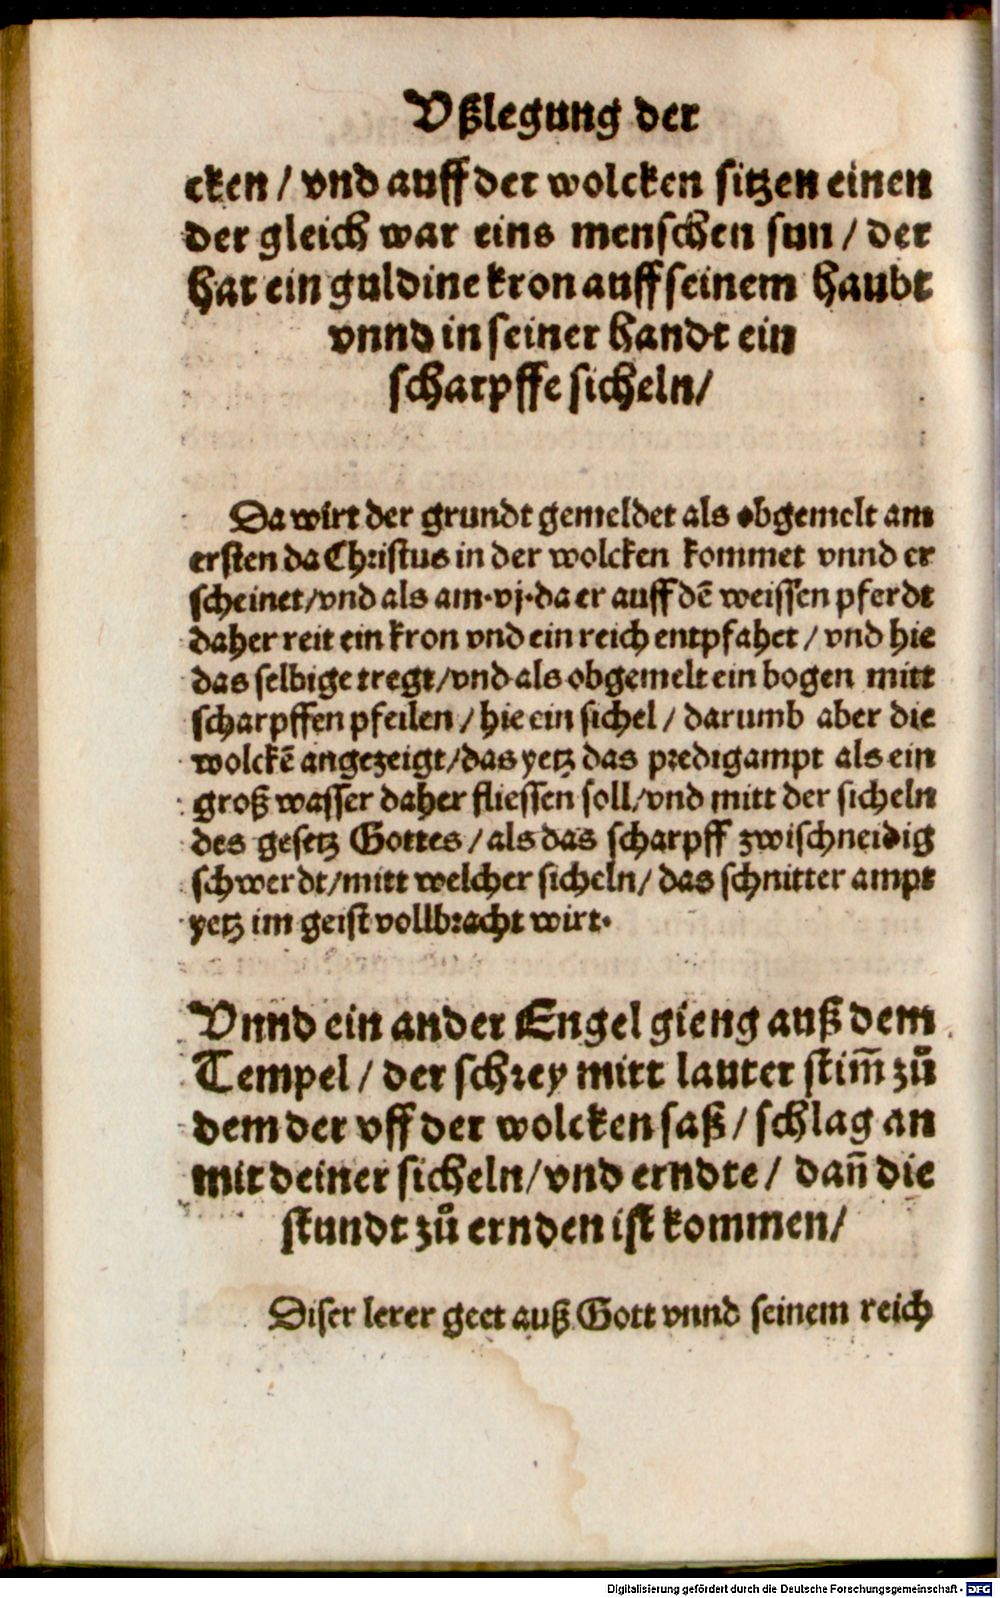 Vßlegung der
cken / vnd auff der wolcken sitzen einen
der gleich war eins menschen sun / der
hat ein guldine kron auff seinem haubt
vnnd in seiner handt ein
scharpffe sicheln /
Da wirt der grundt gemeldet als obgemelt am
ersten da Christus in der wolcken kommet vnnd er
scheinet / vnd als am .vj. da er auff dē weissen pferdt
daher reit ein kron vnd ein reich entpfahet / vnd hie
das selbige tregt / vnd als obgemelt ein bogen mitt
scharpffen pfeilen / hie ein sichel / darumb aber die
wolckē angezeigt / das yetz das predigampt als ein
groß wasser daher fliessen soll / vnd mitt der sicheln
des gesetz Gottes / als das scharpff zwischneidig
schwerdt / mitt welcher sicheln / das schnitter ampt
yetz im geist vollbracht wirt.
Vnnd ein ander Engel gieng auß dem
Tempel / der schrey mitt lauter stim̄ zů
dem der vff der wolcken saß / schlag an
mit deiner sicheln / vnd erndte / dan̄ die
stundt zů ernden ist kommen /
Diser lerer geet auß Gott vnnd seinem reich
Digitalisierung gefördert durch die Deutsche Forschungsgemeinschaft - DFG